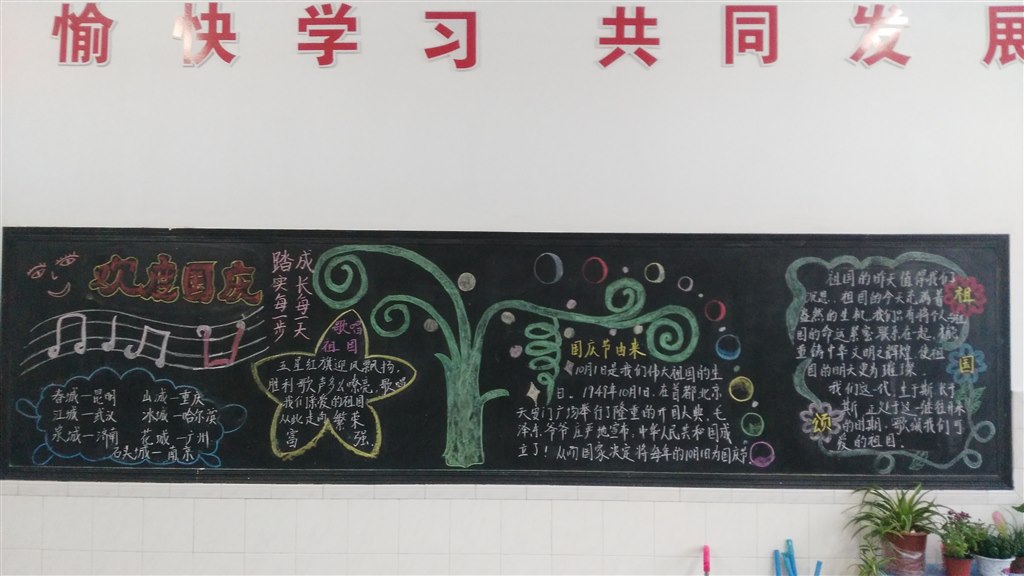 愉快学习 共同发展
欢度国庆
春城—昆明 山城—重庆
江城—武汉 冰城—哈尔滨
泉城—济南 花城—广州
石头城—南京
踏实每一步
成长每一天
歌唱
祖国
五星红旗迎风飘扬,
胜利歌声多么响亮,歌唱
我们亲爱的祖国
从此走向繁荣
富 强
国庆节由来
10月1日是我们伟大祖国的生
日。1949年10月1日,在首都北京
天安门广场举行了隆重的开国大典,毛
泽东爷爷庄严地宣布,中华人民共和国成
立了!从而国家决定将每年的10月1日为国庆节。
祖国颂
祖国的昨天值得我们
沉思,祖国的今天充满着
盎然的生机,我们只有将个人与祖
国的命运紧密联系在起,
重铸中华文明之辉煌,使祖
国的明天更为璀璨。
我们这一代,生于斯,长于
斯,
的时期,歌颂我们可
爱的祖国。